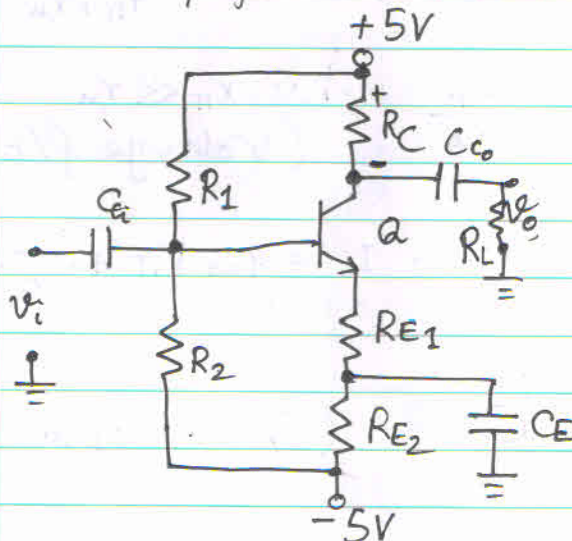 +5V
+
RC
Cc₀
-
R1
Cci
Q
V₀
RL
Vi
RE1
R2
RE2
CE
-5V